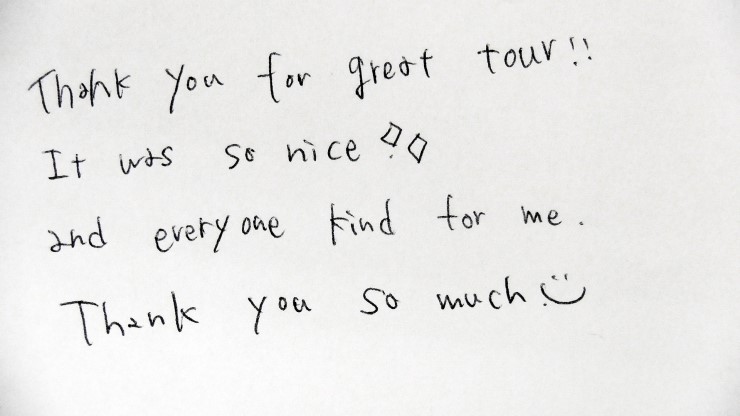 Thank you for great tour!!
It was so nice
and everyone kind for me.
Thank you so much